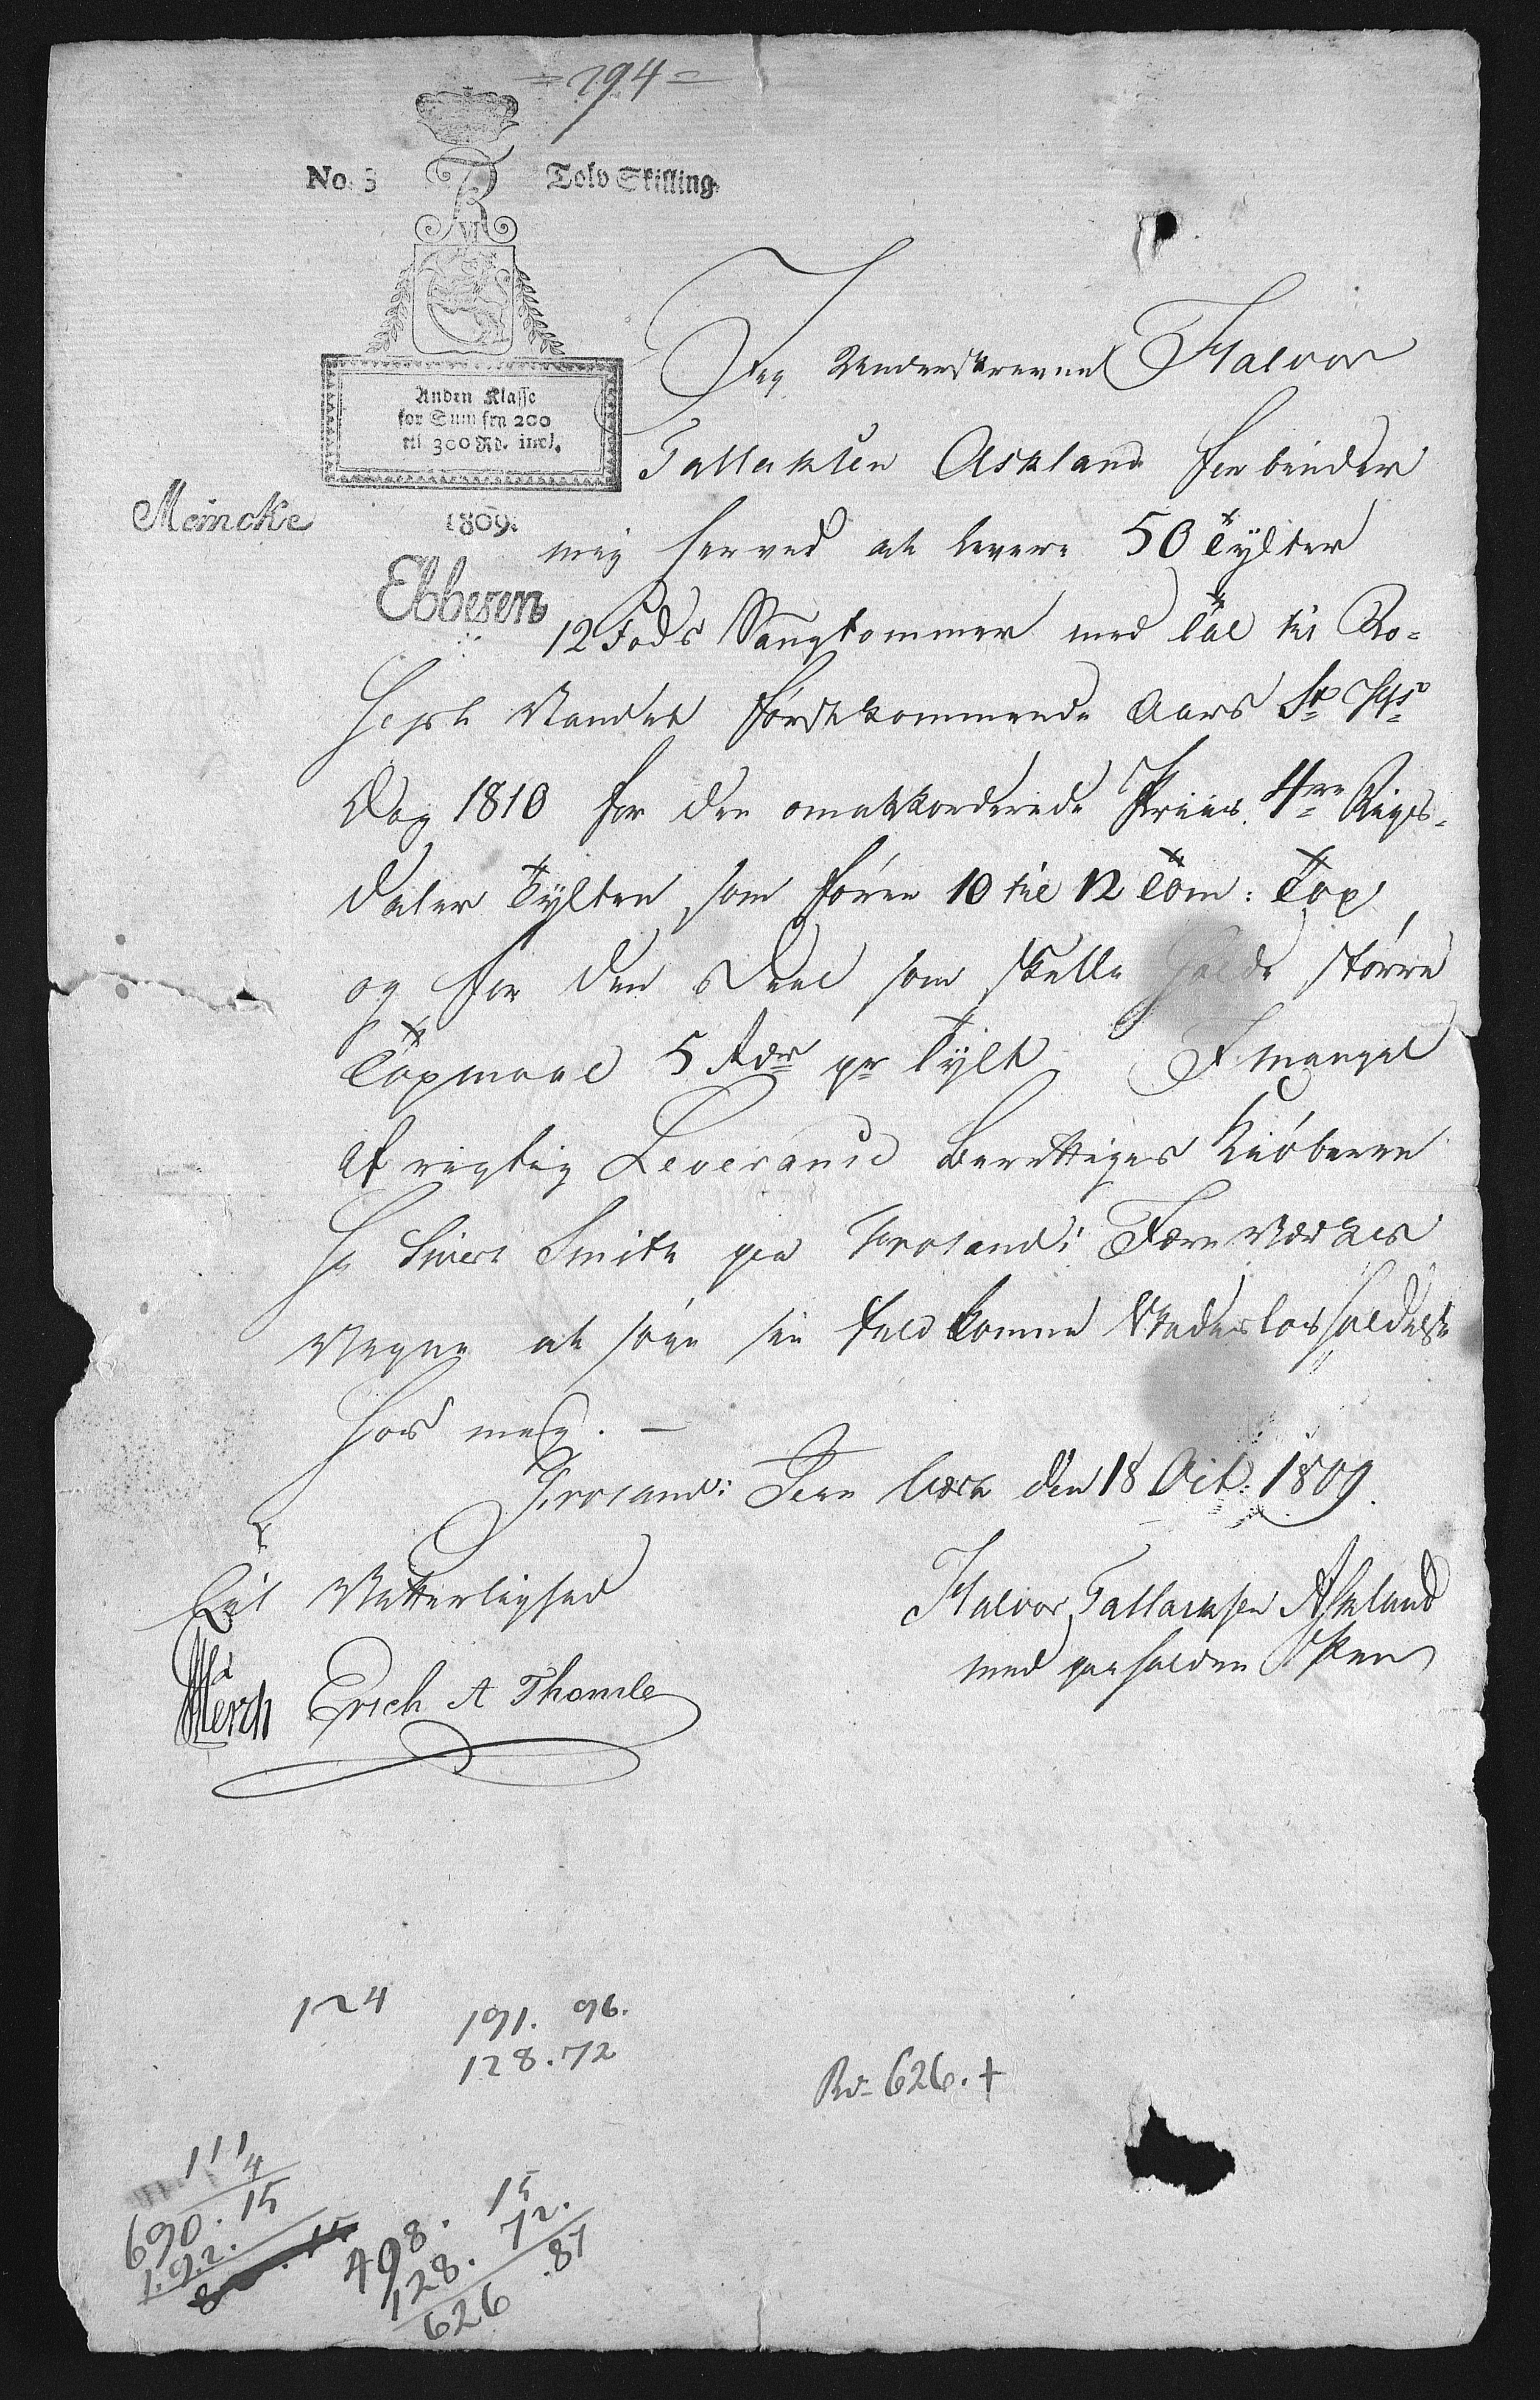 =794=
No. 3 Tolv Skilling.
Anden Klasse
for Sum fra 200
til 300 Rd. incl.
1809.
Meincke
Ebbesen
Jeg Underskrevne Halvor
Tallaksen Askland forbinder
mig herved at levere 50 Tylter
12 Fods Saugtommer med Tal til
Vandet Førstkommende Aars St. Hs
Dag 1810 for den omakkorderede Priis 4re Rigs-
daler Tylten, som foren 10 til 12 Tom: Top,
og for den Deel som skulle holde større
Topmaal 5 Rdr pr Tylt I mangel
af rigtig Leverance berettiges Kiøberen
Hr Sivert Smith paa Froland: Jern Værkes
Vegne at søge sin fuldkomne Skadesløsholdelse
hos mig. —
Froland: Jern Værk den 18 Oct: 1809.
Til Vitterlighed
Halvor Tallachsen Askland
med paaholden Pen
Mørch Erich A Thomle
124
191. 96.
128. 72
Rd 626. +
111
4
690. 15
1.92.
498. 15
128. 72.
626 .87